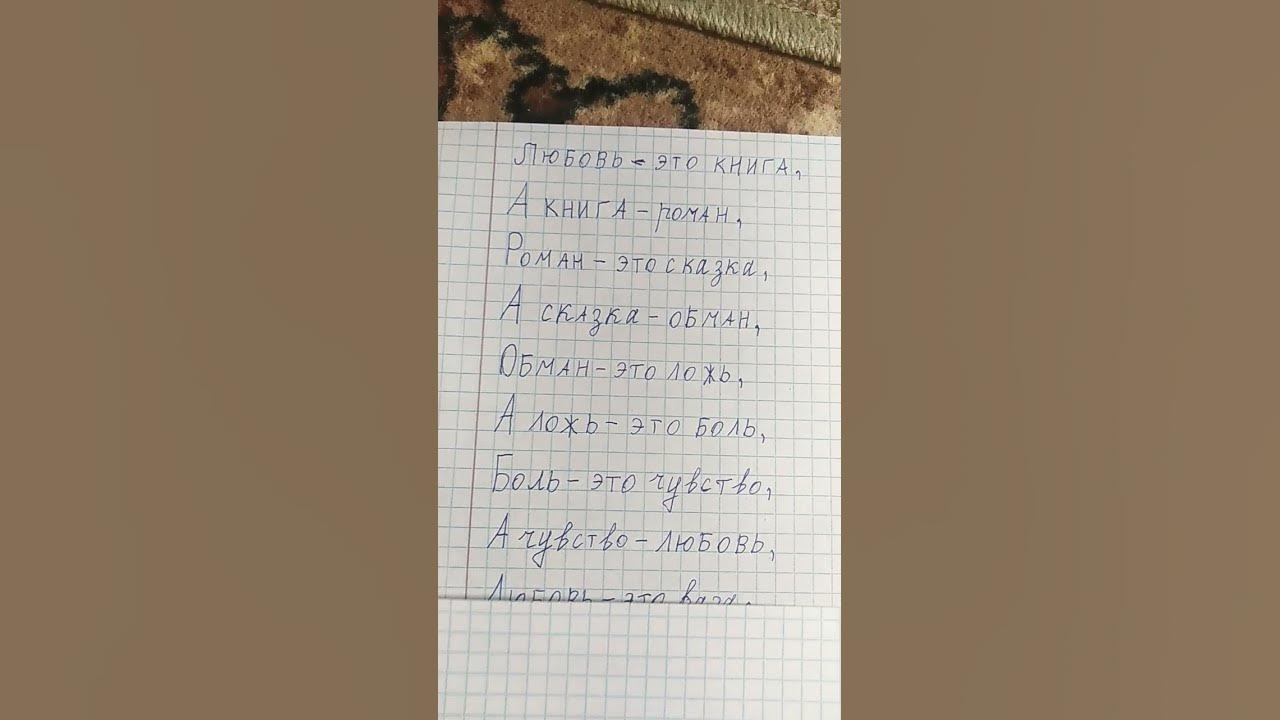 Любовь - это книга,
А книга - роман,
Роман - это сказка,
А сказка - обман,
Обман - это ложь,
А ложь - это боль,
Боль - это чувство,
А чувство - любовь,
Любовь - это